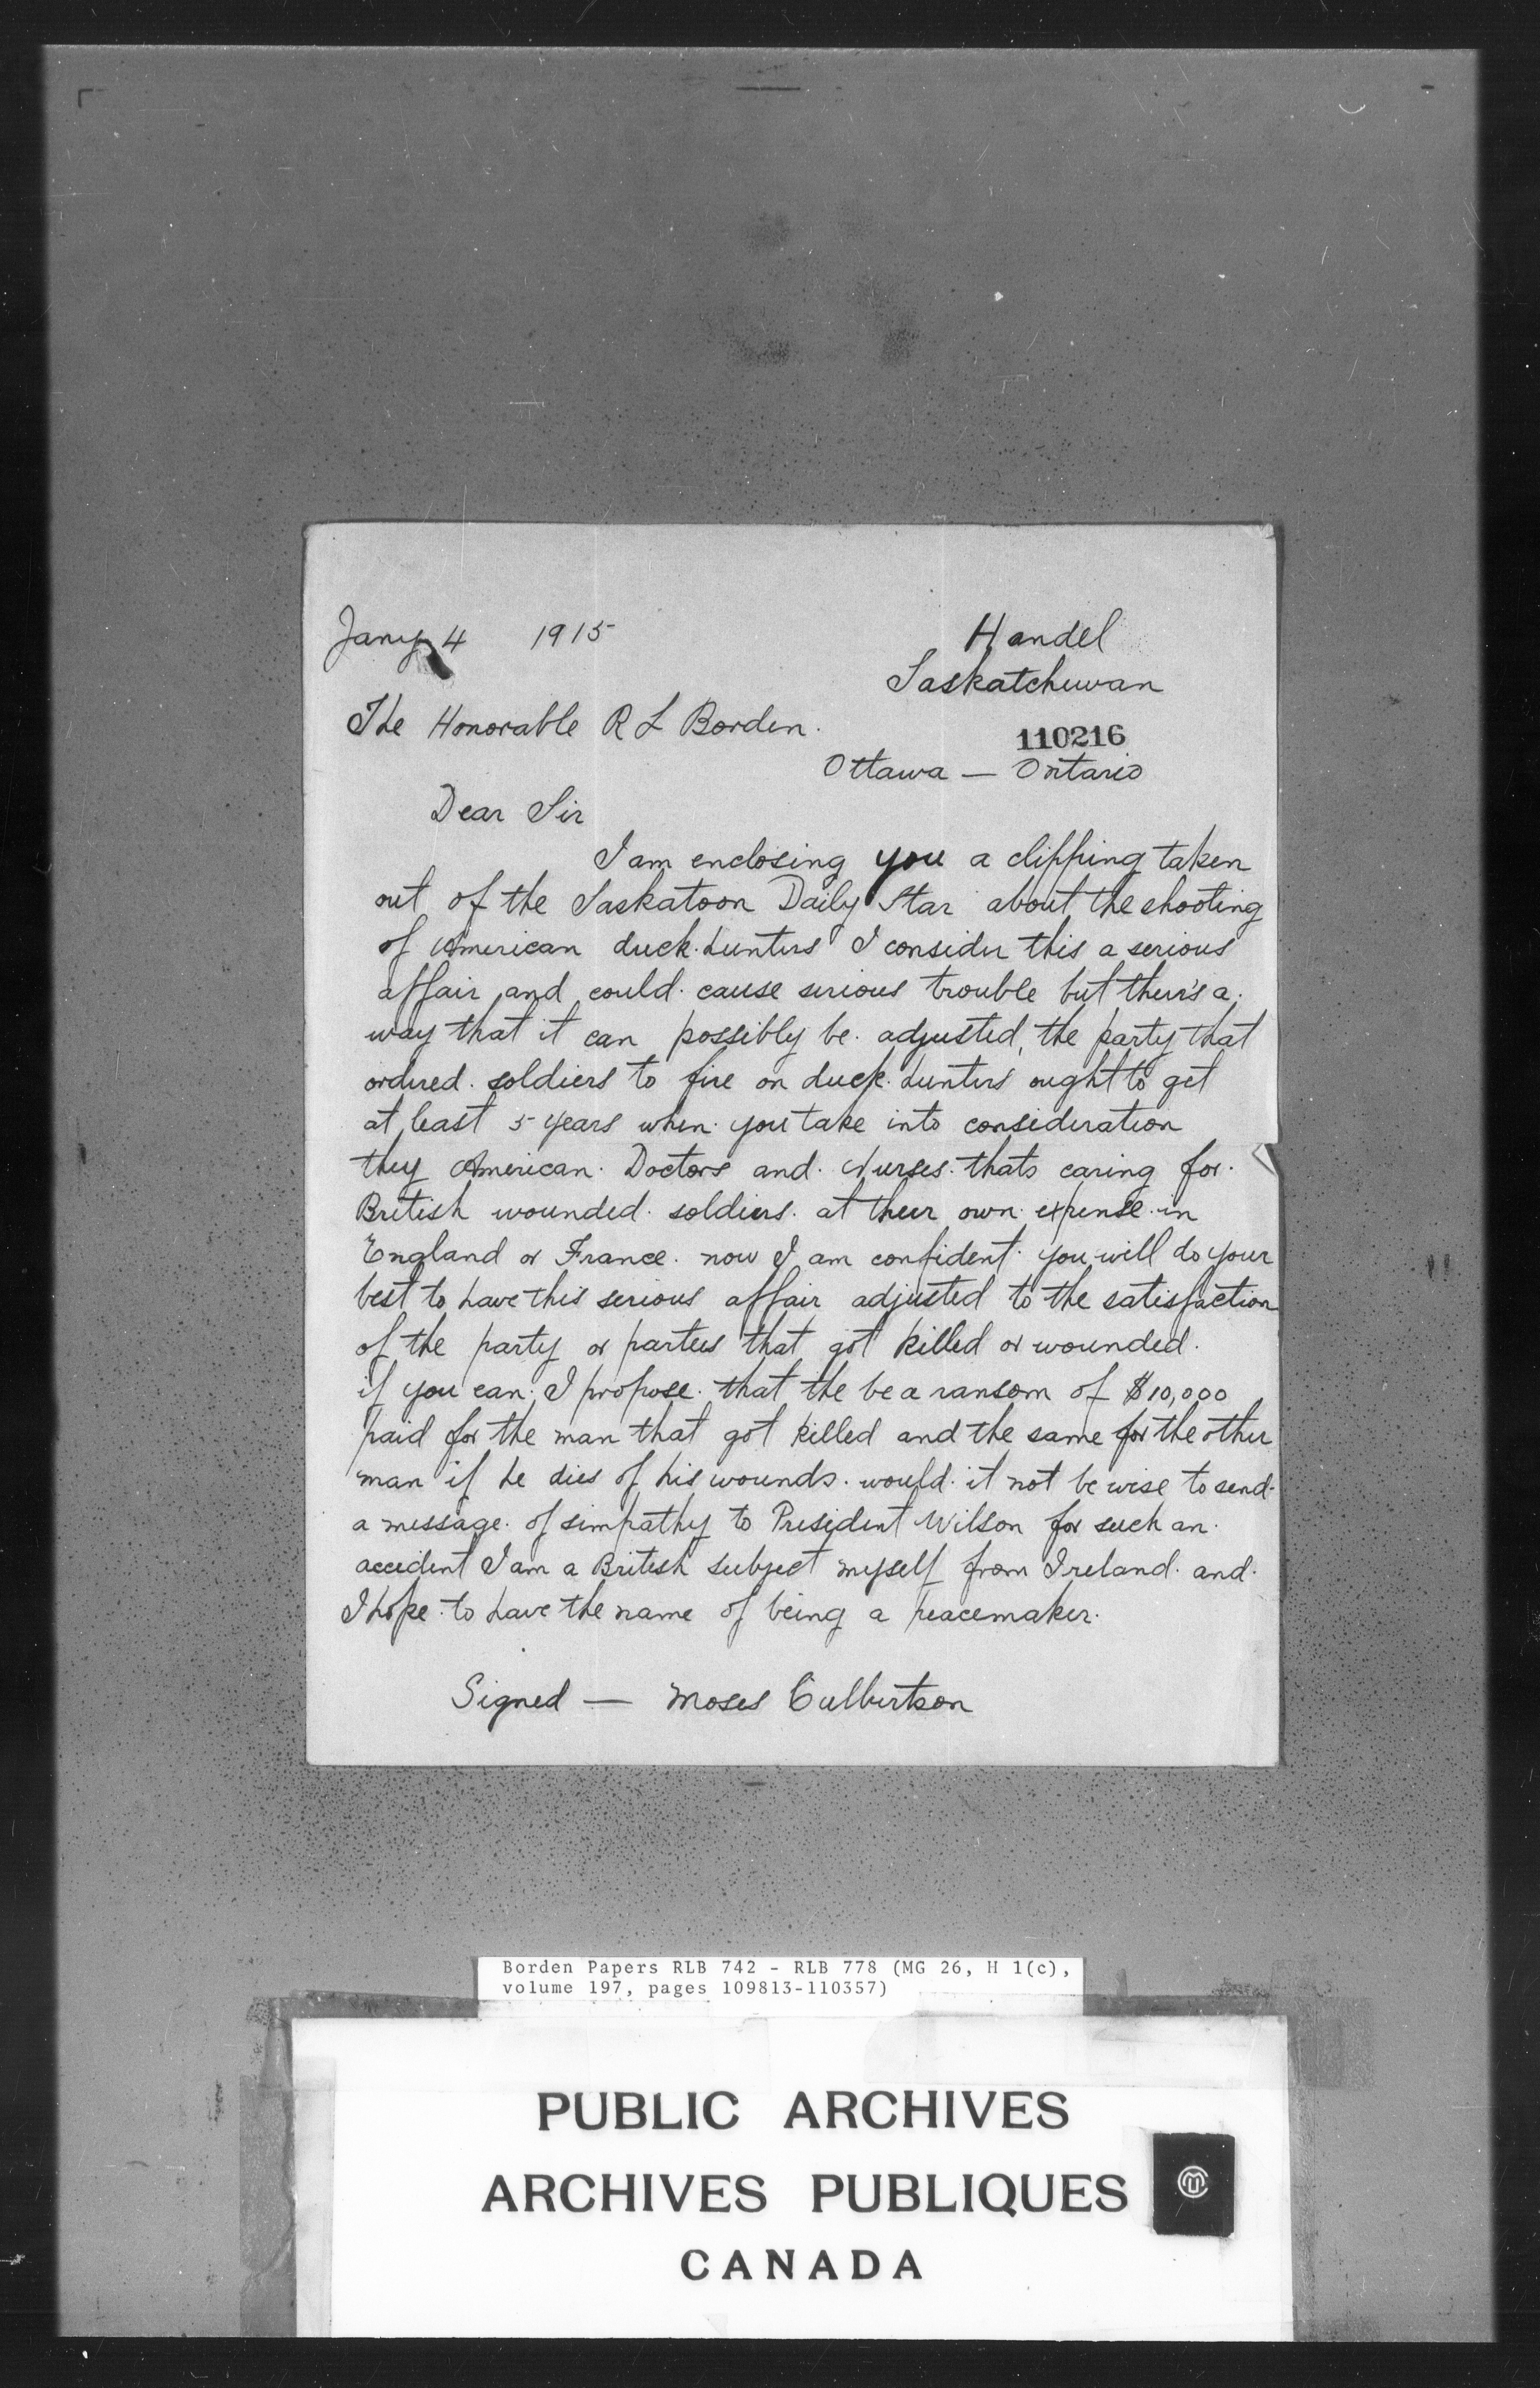 Jany 4 1915
Handel
Saskatchewan
The Honorable R L Borden.
110216
Ottawa — Ontario
Dear Sir
I am enclosing you a clipping taken
out of the Saskatoon Daily Star about the shooting
of American duck hunters I consider this a serious
affair and could cause serious trouble but their's a
way that it can possibly be adjusted, the party that
ordered soldiers to fire on duck hunters ought to get
at least 5 years when you take into consideration
they American Doctors and Nurses thats caring for
British wounded soldiers at their own expense in
England or France. now I am confident you will do your
best to have this serious affair adjusted to the satisfaction
of the party or parties that got killed or wounded.
if you can. I propose that the be a ransom of $10,000
paid for the man that got killed and the same for the other
man if he dies of his wounds. would it not be wise to send
a message of simpathy to President Wilson for such an
accident I am a British subject myself from Ireland and
I hope to have the name of being a peacemaker.
Signed — Moses Culbertson
Borden Papers RLB 742 - RLB 778 (MG 26, H 1(c),
volume 197, pages 109813-110357)
PUBLIC ARCHIVES
ARCHIVES PUBLIQUES
CANADA